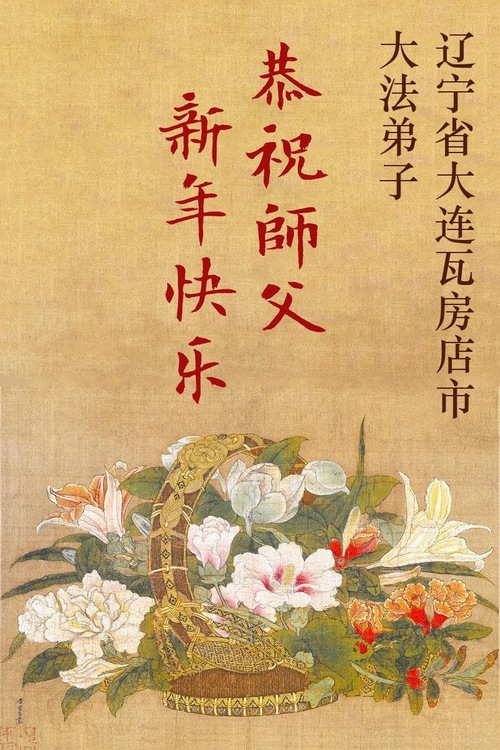 辽宁省大连瓦房店市
大法弟子
恭祝師父
新年快乐